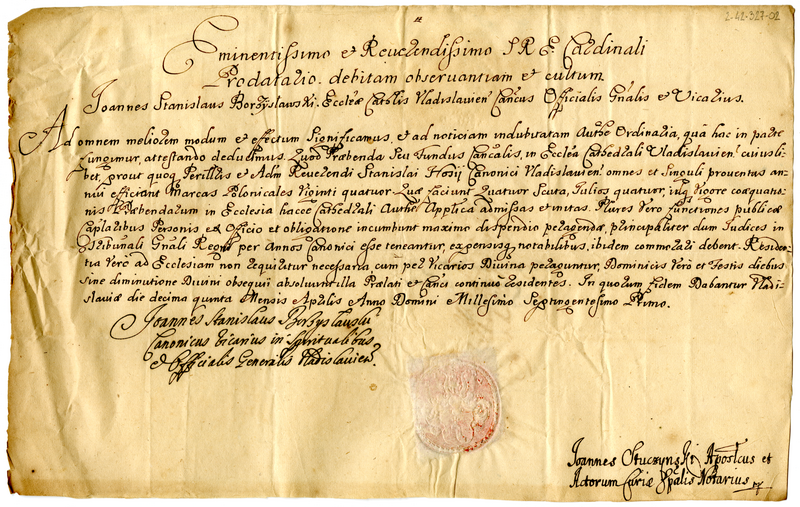 2-42-327-02
Eminentissimo et Reverendissimo S R E Cardinali
Prodatario. debitam observantiam et cultum.
Joannes Stanislaus Borzysławski. Ecclæ Cathlis Vladislavien Cancus Officialis Gnalis et Vicarius.
Ad omnem meliorem modum et effectum Significamus, et ad noticiam indubitatam Autthe Ordinaria, quâ hac in parte
fungimur, attestando deducimus. Quod Præbenda Seu Fundus Cancalis, in Ecclesia Cathedrali Vladislavien cuiusli-
bet, prout quoq Perillris et Adm Reverendi Stanislai Hosij Canonici Vladislavien omnes et Singuli proventus an-
nui efficiant Marcas Polonicales Viginti quatuor. Quæ faciunt Quatuor Scuta, Julios quatuor, itq Vigore coæquatio-
nis Præbendarum in Ecclesia hacce Cathedrali Autthe Applica admissas et initas. Plures Vero functiones publicæ
Caplaribus Personis ex Officio et obligatione incumbunt maximo dispendio peragendæ, principaliter dum Judices in
Tribunali Gnali Regni per Annos Canonici esse teneantur, expensisq notabilibus, ibidem commorari debent. Residen-
tia Verò ad Ecclesiam non requiratur necessaria cum per Vicarios Divina peraguntur, Dominicis Verò et Festis diebus
sine diminutione Divini obsequi absolvunt illa Prælati et Canci continuo residentes. In quorum fidem Dabantur Vladi-
slaviæ die decima quinta Mensis Aprilis Anno Domini Millesimo Septingentesimo Primo.
Joannes Stanislaus Borzysławski
Canonicus Vicarius in Spiritualibus
et Officialis Generalis Vladislavien
Joannes Stuczynski Apostcus et
Actorum Curiæ Notarius